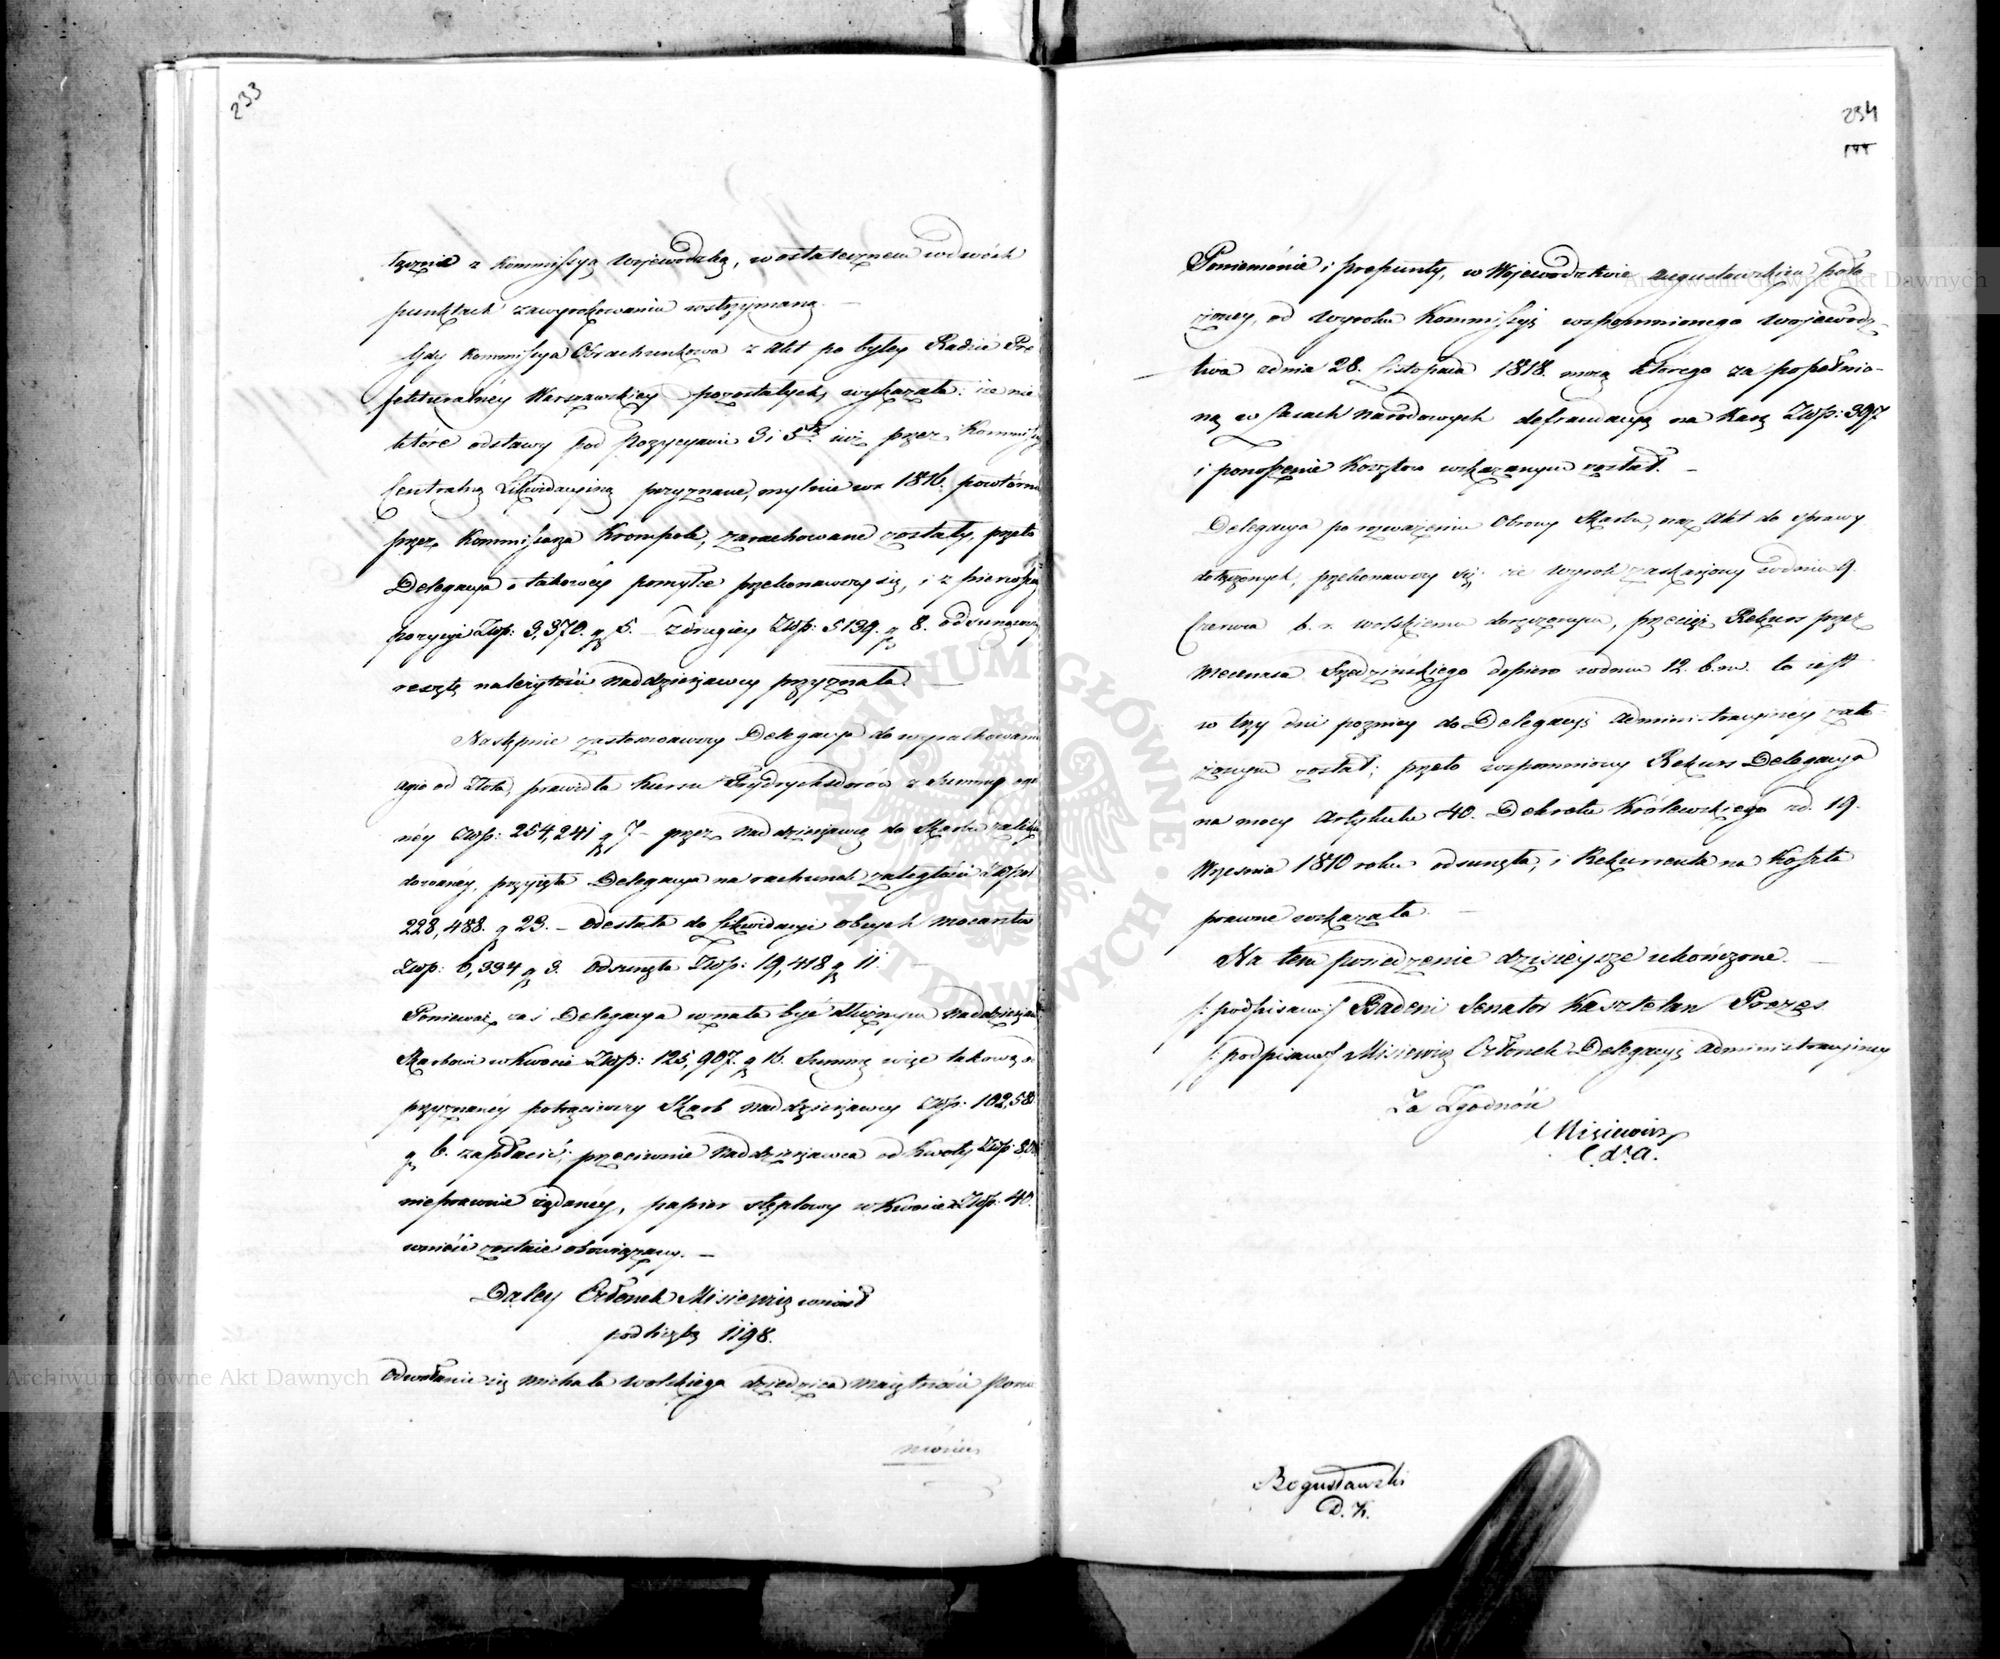 233
łącznie z Kommissyą Wojewódzką, w ostatecznem w dwóch
punktach zawyrokowaniu wstrzymaną. —
Gdy Kommissya Obrachunkowa z Akt po byłey Radzie Pre
fekturalnéy Warszawskiey pozostałych, wykazała: iż nie
które odstawy pod Pozycyami 3 i 5tą iuż przez Kommissyą
Centralną Likwidacyiną przyznane, mylnie w r. 1816. powtórnie
przez Kommissarza Krompolc, zarachowane zostały, przeto
Delegacya o takowéy pomyłce przekonawszy się, i z pierwszéy
pozycyi Złp: 3,370. g 5. — z drugiey Złp: 5139. g 8. odsunąwszy
resztę należytości Naddzierżawcy przyznała. —
Następnie zastosowawszy Delegacya do wyrachowania
agio od Złota, prawidła Kursu Frydrychsdorów z Summy ogó
lnéy Złp: 254,241 g 7 — przez Naddzierżawcę do Skarbu zalikwi
dowanéy, przyięła Delegacya na rachunek zaległości Złp:
228,488. g 23. — Odesłała do Likwidacyi obcych mocarstw
Złp: 6,334 g 3. Odsunęła Złp: 19,418 g 11. —
Ponieważ zaś Delegacya uznała być dłużnym Naddzierżawcę
Skarbowi w Kwocie Złp: 125,907. g 16. Summę więc takową od
przyznanéy potrąciwszy Skarb Naddzierżawcy Złp: 102,58
g 6. zapłacić; przeciwnie Naddzierżawca od Kwoty Złp:
nieprawnie żądanéy, papier stęplowy w Kwocie Złp: 40.
wnieść zostaie obowiązany. —
Daley Członek Misiewicz wniósł
pod liczbą 1198.
Odwołanie się Michała Wolskiego dziedzica Maiętności Ponie
mónia
234
Poniemónia i Preponty, w Województwie Augustowskiem poło
żoney, od Wyroku Kommissyi wspomnionego Wojewódz-
twa z dnia 28. Listopada 1818. mocą którego za popełnio-
ną w Lasach Narodowych defraudacyą na Karę Złp: 397
i ponoszenie Kosztów wskazanym został. —
Delegacya po rozważeniu Obrony Skarbu, oraz Akt do Sprawy
dołączonych, przekonawszy się; że wyrok zaskarżony w dniu 9.
Czerwca b. r. Wolskiemu doręczonym, przecież Rekurs przez
Mecenasa Szędzińskiego dopiero w dniu 12. b. m. to iest
w trzy dni pozniey do Delegacyi Administracyiney zało
żonym został; przeto wspomniony Rekurs Delegacya
na mocy Artykułu 40. Dekretu Królewskiego z d. 19.
Września 1810 roku odsunęła, i Rekurrenta na Koszta
prawne wskazała. —
Na tem posiedzenie dzisieysze ukończone. —
/: podpisano :/ Badeni Senator Kasztelan Prezes
/: podpisano :/ Misiewicz Członek Delegacyi Administracyiney
Za Zgodność
Misiewicz
C. d. A.
Bogusławski
D. K.
ARCHIWUM GŁÓWNE AKT DAWNYCH
Archiwum Główne Akt Dawnych
Archiwum Główne Akt Dawnych